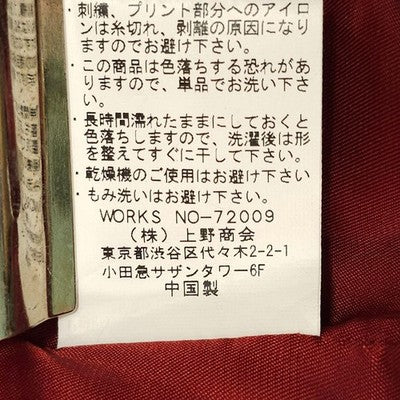 ・刺繍、プリント部分へのアイロ
ンは糸切れ、剥離の原因になり
ますのでお避け下さい。
・この商品は色落ちする恐れがあ
りますので、単品でお洗い下さ
い。
・長時間濡れたままにしておくと
色落ちしますので、洗濯後は形
を整えてすぐに干して下さい。
・乾燥機のご使用はお避け下さい
・もみ洗いはお避け下さい。
WORKS NO-72009
(株)上野商会
東京都渋谷区代々木2-2-1
小田急サザンタワー6F
中国製